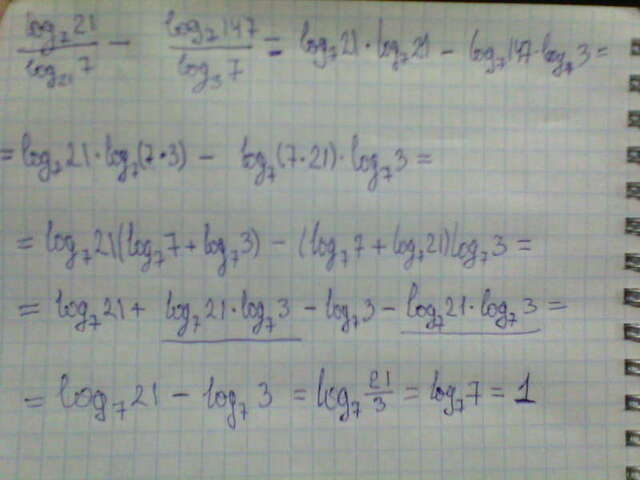 log₇21/log₂₁7 − log₇147/log₃7 = log₇21·log₇21 − log₇147·log₇3 =
= log₇21·log₇(7·3) − log₇(7·21)·log₇3 =
= log₇21(log₇7 + log₇3) − (log₇7 + log₇21)log₇3 =
= log₇21 + log₇21·log₇3 − log₇3 − log₇21·log₇3 =
= log₇21 − log₇3 = log₇21/3 = log₇7 = 1